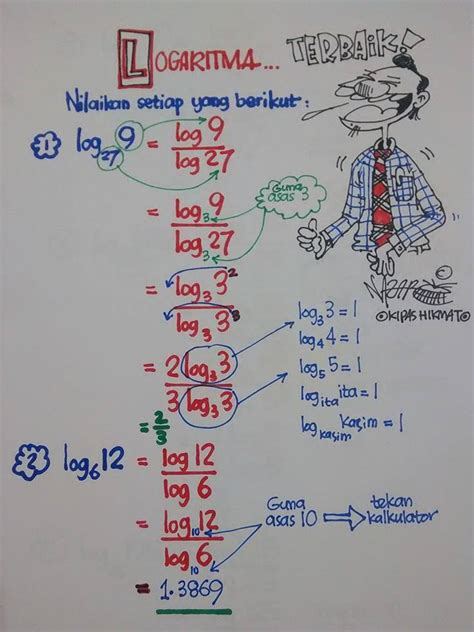 LOGARITMA...
TERBAIK!
Nilaikan setiap yang berikut:
1 log₂₇ 9 = log 9 / log 27
Guna asas 3
= log₃ 9 / log₃ 27
= log₃ 3² / log₃ 3³
= 2 log₃ 3 / 3 log₃ 3
log₃ 3 = 1
log₄ 4 = 1
log₅ 5 = 1
log_ita ita = 1
log_kasim kasim = 1
= 2/3
©KIPASHIKMAT
2 log₆ 12 = log 12 / log 6
= log₁₀ 12 / log₁₀ 6
Guna asas 10 ⇒ tekan kalkulator
= 1.3869